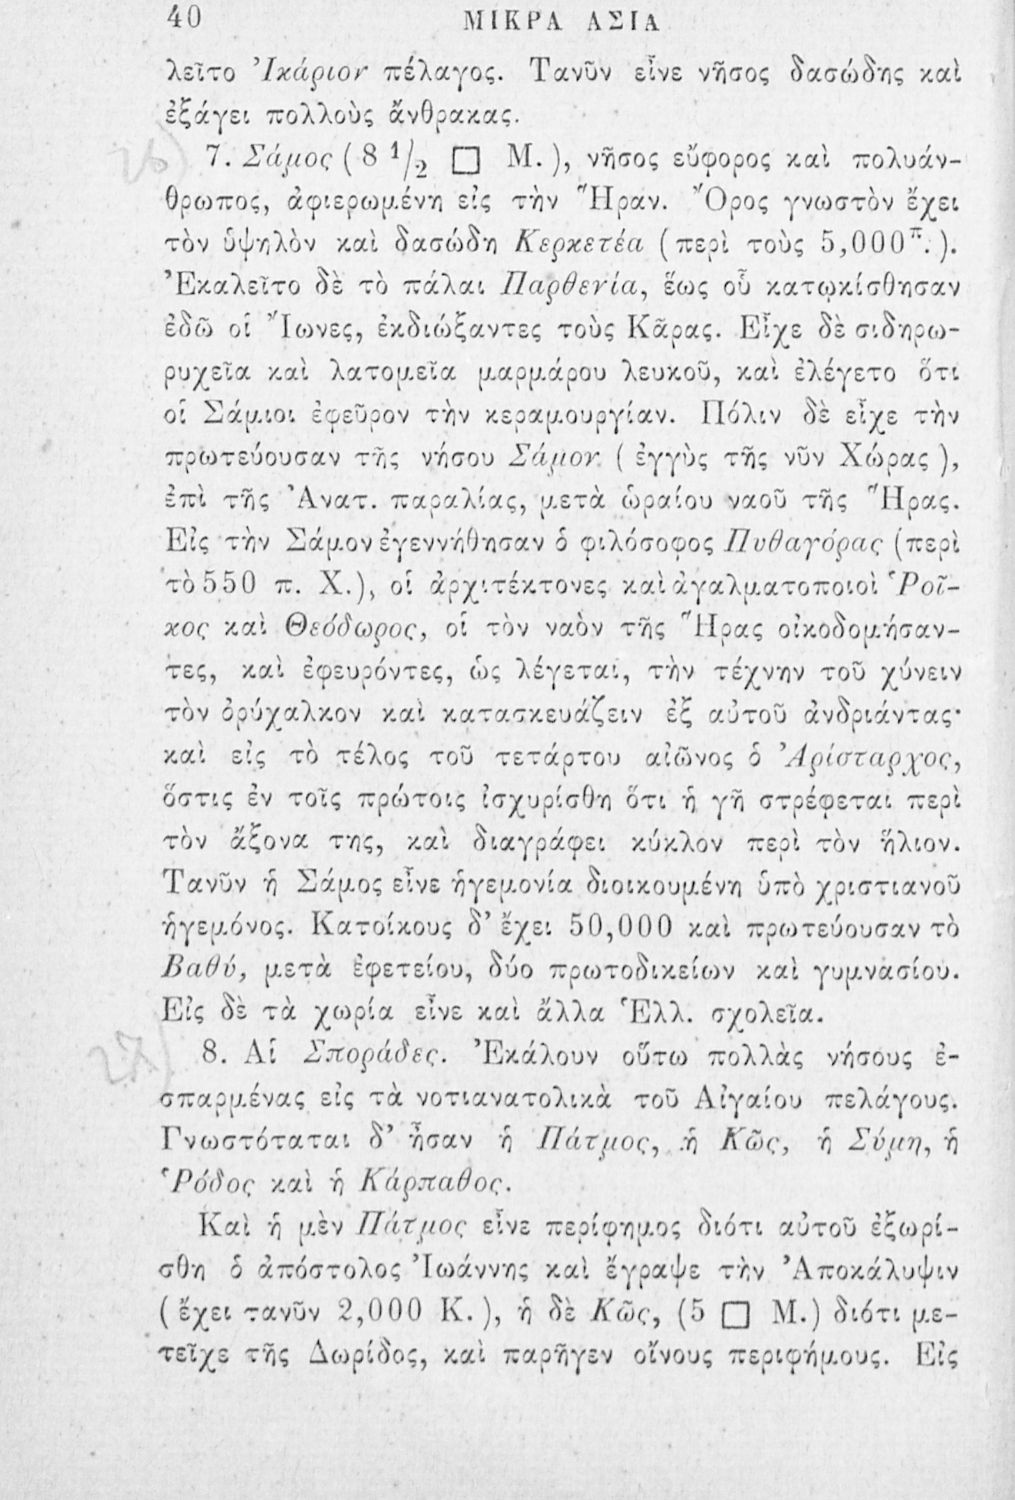 40 ΜΙΚΡΑ ΑΣΙΑ
λεῖτο Ἰκάριον πέλαγος. Τανῦν εἶνε νῆσος δασώδης καὶ
ἐξάγει πολλοὺς ἄνθρακας.
7. Σάμος ( 8 1/2 □ Μ. ), νῆσος εὔφορος καὶ πολυάν-
θρωπος, ἀφιερωμένη εἰς τὴν Ἥραν. Ὄρος γνωστὸν ἔχει
τὸν ὑψηλὸν καὶ δασώδη Κερκετέα ( περὶ τοὺς 5,000π. ).
Ἐκαλεῖτο δὲ τὸ πάλαι Παρθενία, ἕως οὗ κατῳκίσθησαν
ἐδῶ οἱ Ἴωνες, ἐκδιώξαντες τοὺς Κᾶρας. Εἶχε δὲ σιδηρω-
ρυχεῖα καὶ λατομεῖα μαρμάρου λευκοῦ, καὶ ἐλέγετο ὅτι
οἱ Σάμιοι ἐφεῦρον τὴν κεραμουργίαν. Πόλιν δὲ εἶχε τὴν
πρωτεύουσαν τῆς νήσου Σάμον ( ἐγγὺς τῆς νῦν Χώρας ),
ἐπὶ τῆς Ἀνατ. παραλίας, μετὰ ὡραίου ναοῦ τῆς Ἥρας.
Εἰς τὴν Σάμον ἐγεννήθησαν ὁ φιλόσοφος Πυθαγόρας (περὶ
τὸ 550 π. Χ.), οἱ ἀρχιτέκτονες καὶ ἀγαλματοποιοὶ Ῥοῖ-
κος καὶ Θεόδωρος, οἱ τὸν ναὸν τῆς Ἥρας οἰκοδομήσαν-
τες, καὶ ἐφευρόντες, ὡς λέγεται, τὴν τέχνην τοῦ χύνειν
τὸν ὀρύχαλκον καὶ κατασκευάζειν ἐξ αὐτοῦ ἀνδριάντας·
καὶ εἰς τὸ τέλος τοῦ τετάρτου αἰῶνος ὁ Ἀρίσταρχος,
ὅστις ἐν τοῖς πρώτοις ἰσχυρίσθη ὅτι ἡ γῆ στρέφεται περὶ
τὸν ἄξονα της, καὶ διαγράφει κύκλον περὶ τὸν ἥλιον.
Τανῦν ἡ Σάμος εἶνε ἡγεμονία διοικουμένη ὑπὸ χριστιανοῦ
ἡγεμόνος. Κατοίκους δ' ἔχει 50,000 καὶ πρωτεύουσαν τὸ
Βαθύ, μετὰ ἐφετείου, δύο πρωτοδικείων καὶ γυμνασίου.
Εἰς δὲ τὰ χωρία εἶνε καὶ ἄλλα Ἑλλ. σχολεῖα.
27) 8. Αἱ Σποράδες. Ἐκάλουν οὕτω πολλὰς νήσους ἐ-
σπαρμένας εἰς τὰ νοτιανατολικὰ τοῦ Αἰγαίου πελάγους.
Γνωστόταται δ' ἦσαν ἡ Πάτμος, ἡ Κῶς, ἡ Σύμη, ἡ
Ῥόδος καὶ ἡ Κάρπαθος.
Καὶ ἡ μὲν Πάτμος εἶνε περίφημος διότι αὐτοῦ ἐξωρί-
σθη ὁ ἀπόστολος Ἰωάννης καὶ ἔγραψε τὴν Ἀποκάλυψιν
( ἔχει τανῦν 2,000 Κ. ), ἡ δὲ Κῶς, (5 □ Μ.) διότι με-
τεῖχε τῆς Δωρίδος, καὶ παρῆγεν οἴνους περιφήμους. Εἰς